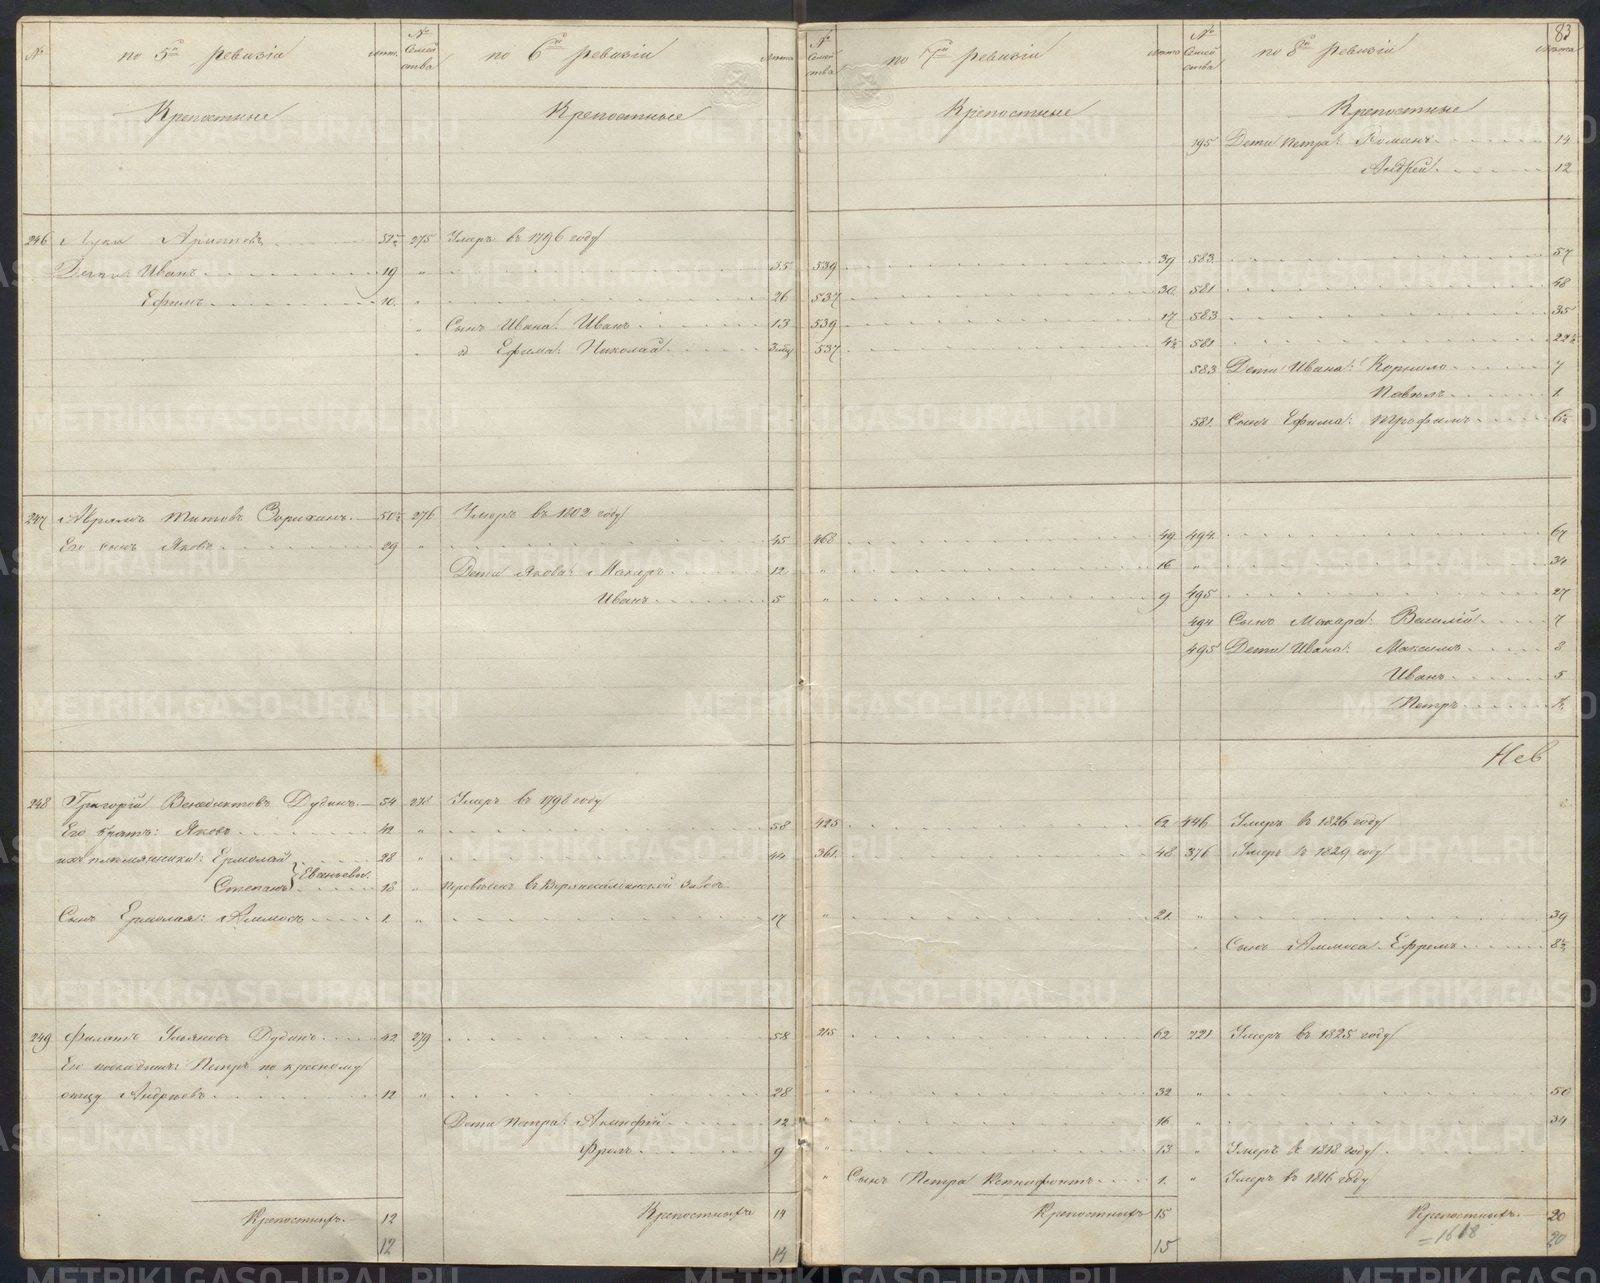 83
№ по 5й ревизіи лѣта № Семейства по 6й ревизіи лѣта
№ Семейства по 7й ревизіи лѣта № Семейства по 8й ревизіи лѣта
Крепостные Крепостные Крепостные Крепостные
195 Дети Петра: Романъ 14
Андрей 12
246 Лука 51½ 275 Умеръ въ 1796 году
Дети: Иванъ 19 " 35 539 39 583 57
Ефимъ 10 " 26 537 30 581 48
" Сынъ Ивана: Иванъ 13 539 17 583 35
" Ефима: Николай 537 4½ 581 22½
583 Дети Ивана: Корнило 7
Павелъ 1
581 Сынъ Ефима: Трофимъ 6½
247 Абрамъ Титовъ 276 Умеръ въ 1802 году
Его сынъ Яковъ 29 " 45 468 49 494 67
Дети Якова: Макаръ 12 " 16 " 34
Иванъ 5 " 9 495 27
494 Сынъ Макара: Василій 7
495 Дети Ивана: Максимъ 8
Иванъ 5
Петръ
Нев
248 Григорій Венедиктовъ Дудинъ 54 278 Умеръ въ 1798 году
Его братъ: Яковъ 42 " 58 425 62 446 Умеръ въ 1826 году
ихъ племянники: Ермолай 28 " 44 361 48 376 Умеръ въ 1829 году
Степанъ 18 " Переведенъ в заводъ
Сынъ Ермолая: Аммосъ 1 " 17 " 21 " 39
" Сынъ Аммоса Ефремъ 8½
249 Филатъ Ульяновъ Дудинъ 42 279 58 215 62 221 Умеръ въ 1825 году
Его Петръ по крестному
отцу Андреевъ 12 " 28 " 32 " 50
Дети Петра: Акинфій 12 " 16 " 34
Фролъ 9 " 13 " Умеръ в 1818 году
" Сынъ Петра Ксенофонтъ 1 " Умеръ въ 1816 году
Крепостныхъ 12 Крепостныхъ 14 Крепостныхъ 15 Крепостныхъ 20
12 14 15 =1618 20
METRIKI.GASO-URAL.RU